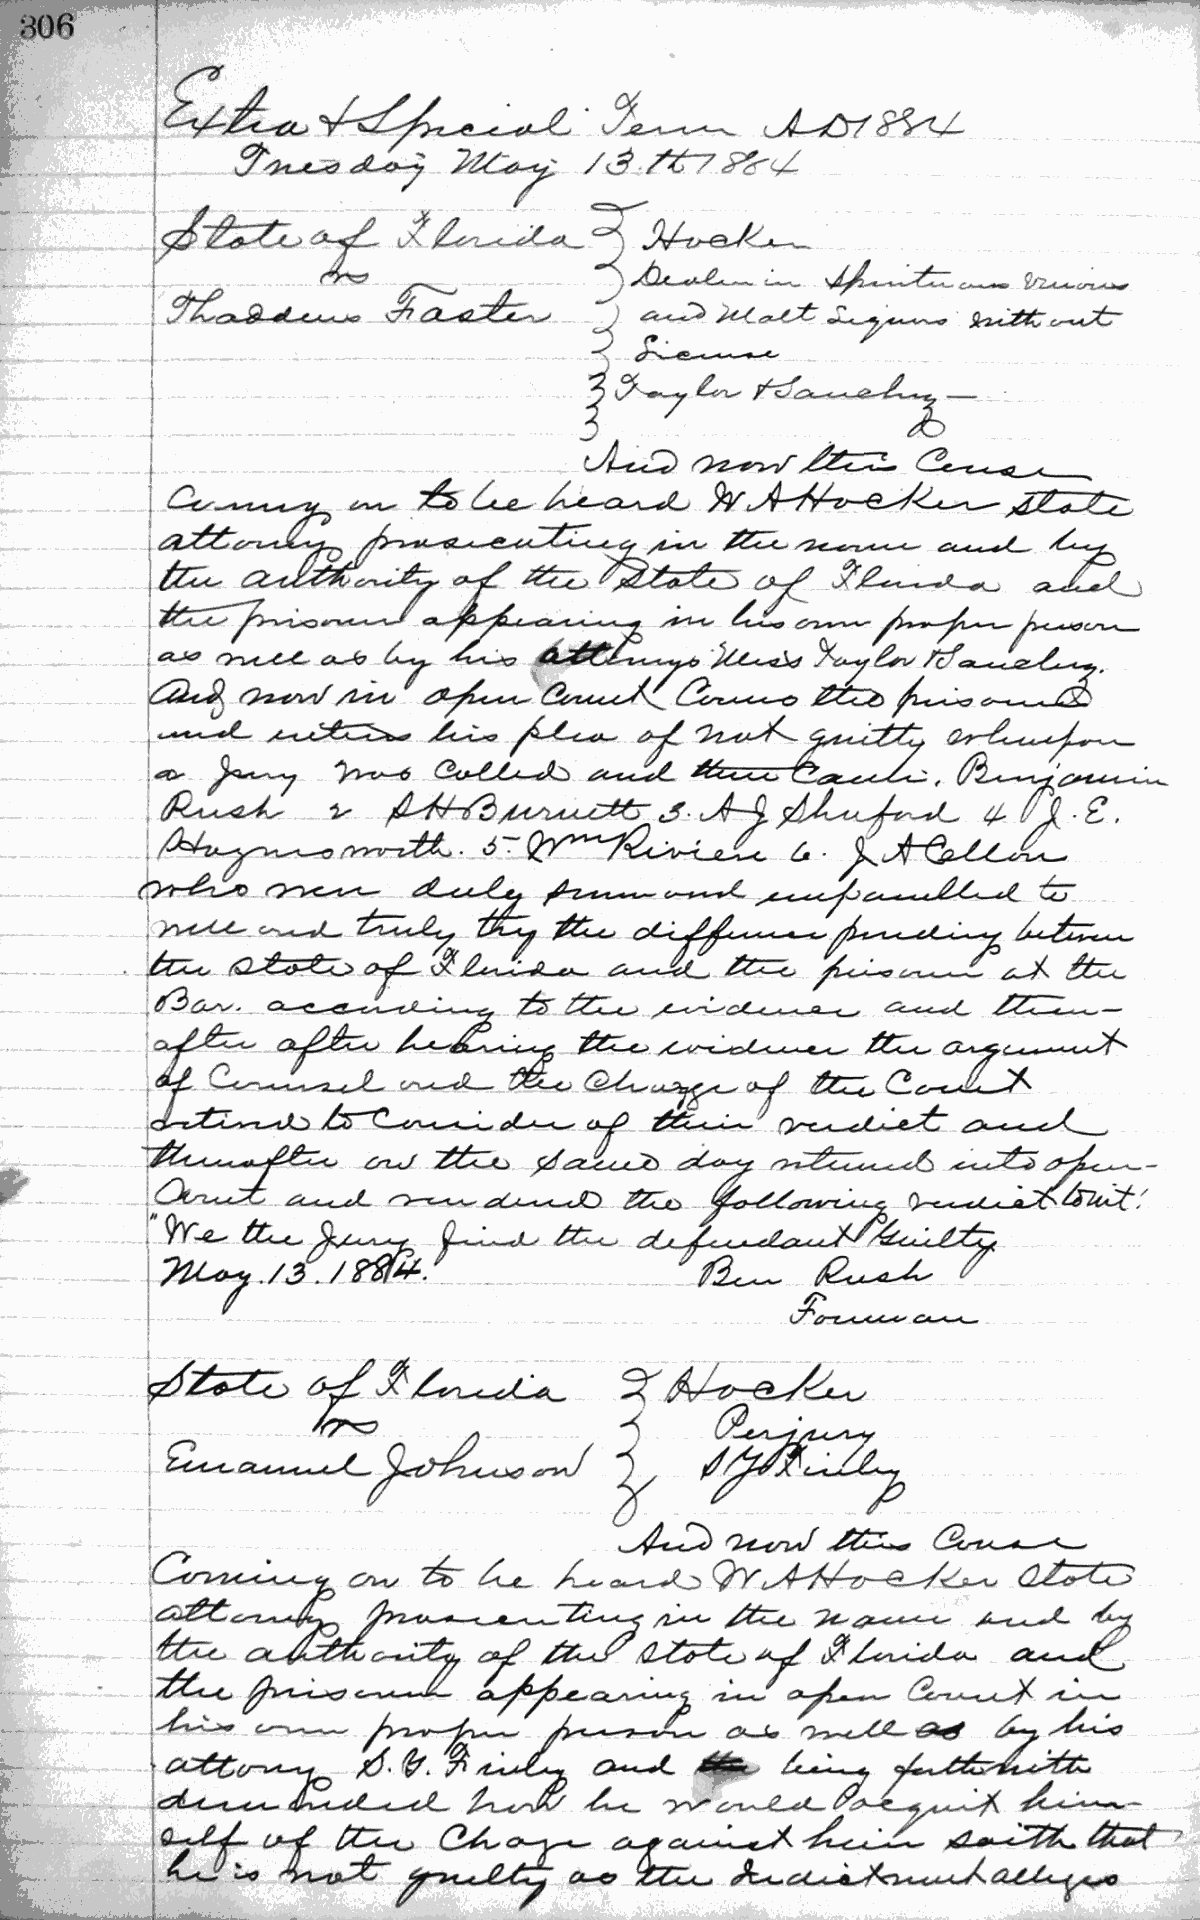 306
Extra & Special Term AD 1884
Tuesday May 13.th 1884
State of Florida } Hocker
vs } Dealer in Spirituous Vinious
Thaddeus Faster } and Malt Liquors without
} License
} Taylor & Sanchez —
And now this Cause
Coming on to be heard W A Hocker State
attorney prosecuting in the name and by
the authority of the State of Florida and
the prisoner appearing in his own proper person
as well as by his attorneys Mess Taylor & Sanchez.
And now in open Court Comes the prisoner
and enters his plea of not guilty whereupon
a Jury was Called and there Came. Benjamin
Rush 2 S H Burnett 3. A J Shuford 4 J. E.
Haynesworth. 5. Wm Riviere 6. J A Cellon
who were duly sworn and empanelled to
well and truly try the difference pending between
the State of Florida and the prisoner at the
Bar. according to the evidence and there-
after after hearing the evidence the argument
of Counsel and the Charge of the Court
retired to Consider of their verdict and
thereafter on the same day returned into open-
Court and rendered the following verdict towit:
"We the Jury find the defendant Guilty
May. 13. 1884. Ben Rush
Foreman
State of Florida } Hocker
vs } Perjury
Emanuel Johnson } S Y Finley
And now this Cause
Coming on to be heard W A Hocker State
attorney prosecuting in the name and by
the authority of the State of Florida and
the prisoner appearing in open Court in
his own proper person as well as by his
attorny S. Y. Finley and being forthwith
demanded how he would acquit him-
self of the Charge against him saith that
he is not guilty as the Indictment alleges